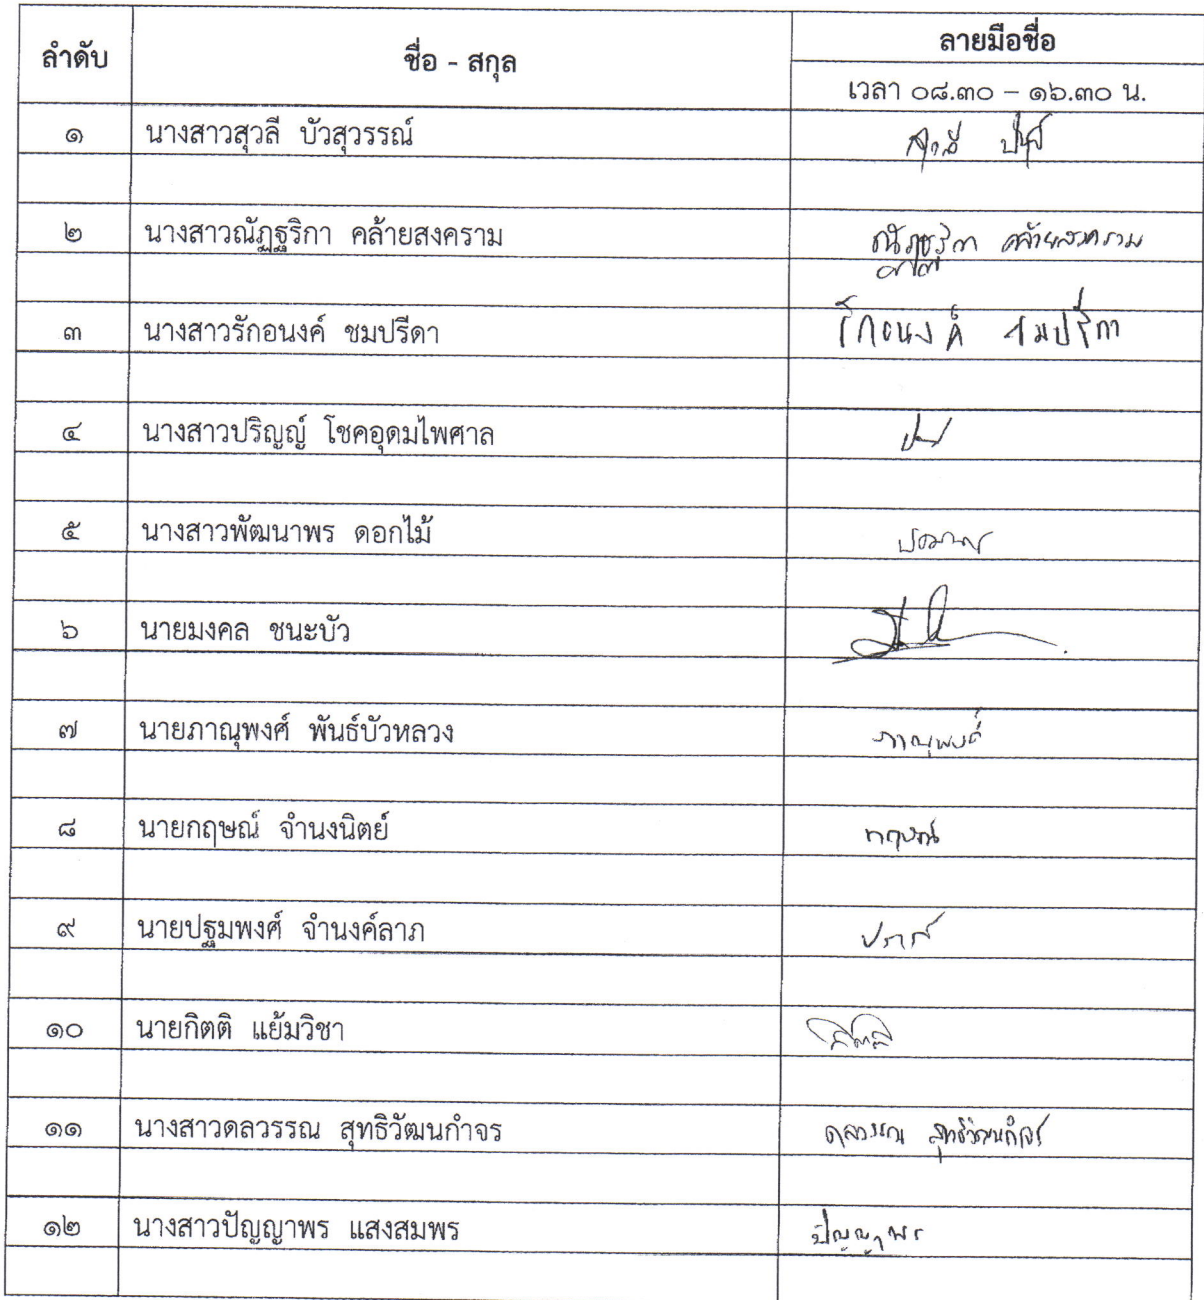 ลำดับ ชื่อ - สกุล ลายมือชื่อ
เวลา ๐๘.๓๐ – ๑๖.๓๐ น.
๑ นางสาวสุวลี บัวสุวรรณ์ สุวลี
๒ นางสาวณัฏฐริกา คล้ายสงคราม ณัฏฐริกา คล้ายสงคราม
๓ นางสาวรักอนงค์ ชมปรีดา รักอนงค์ ชมปรีดา
๔ นางสาวปริญญ์ โชคอุดมไพศาล
๕ นางสาวพัฒนาพร ดอกไม้
๖ นายมงคล ชนะบัว
๗ นายภาณุพงศ์ พันธ์บัวหลวง ภาณุพงศ์
๘ นายกฤษณ์ จำนงนิตย์ กฤษณ์
๙ นายปฐมพงศ์ จำนงค์ลาภ
๑๐ นายกิตติ แย้มวิชา กิตติ
๑๑ นางสาวดลวรรณ สุทธิวัฒนกำจร ดลวรรณ สุทธิวัฒนกำจร
๑๒ นางสาวปัญญาพร แสงสมพร ปัญญาพร